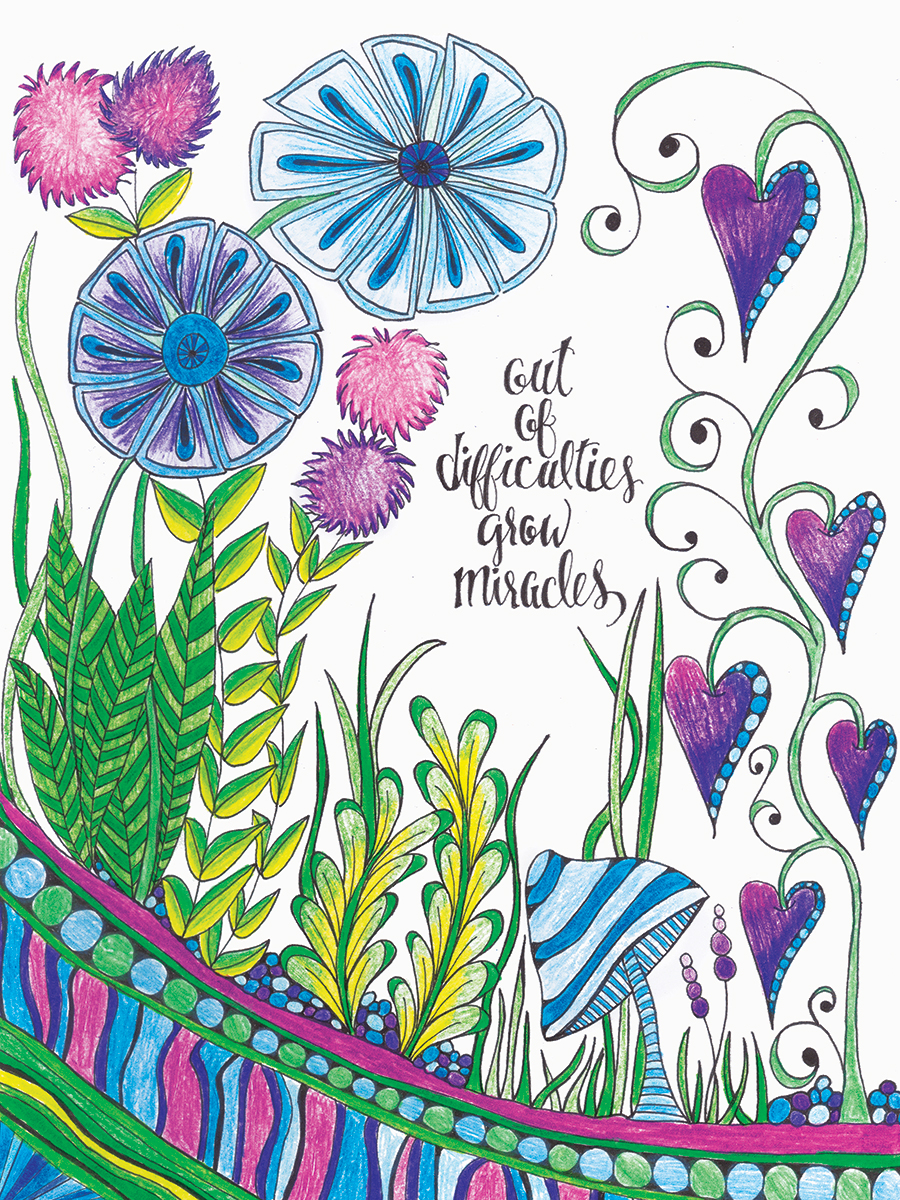 out
of
difficulties
grow
miracles